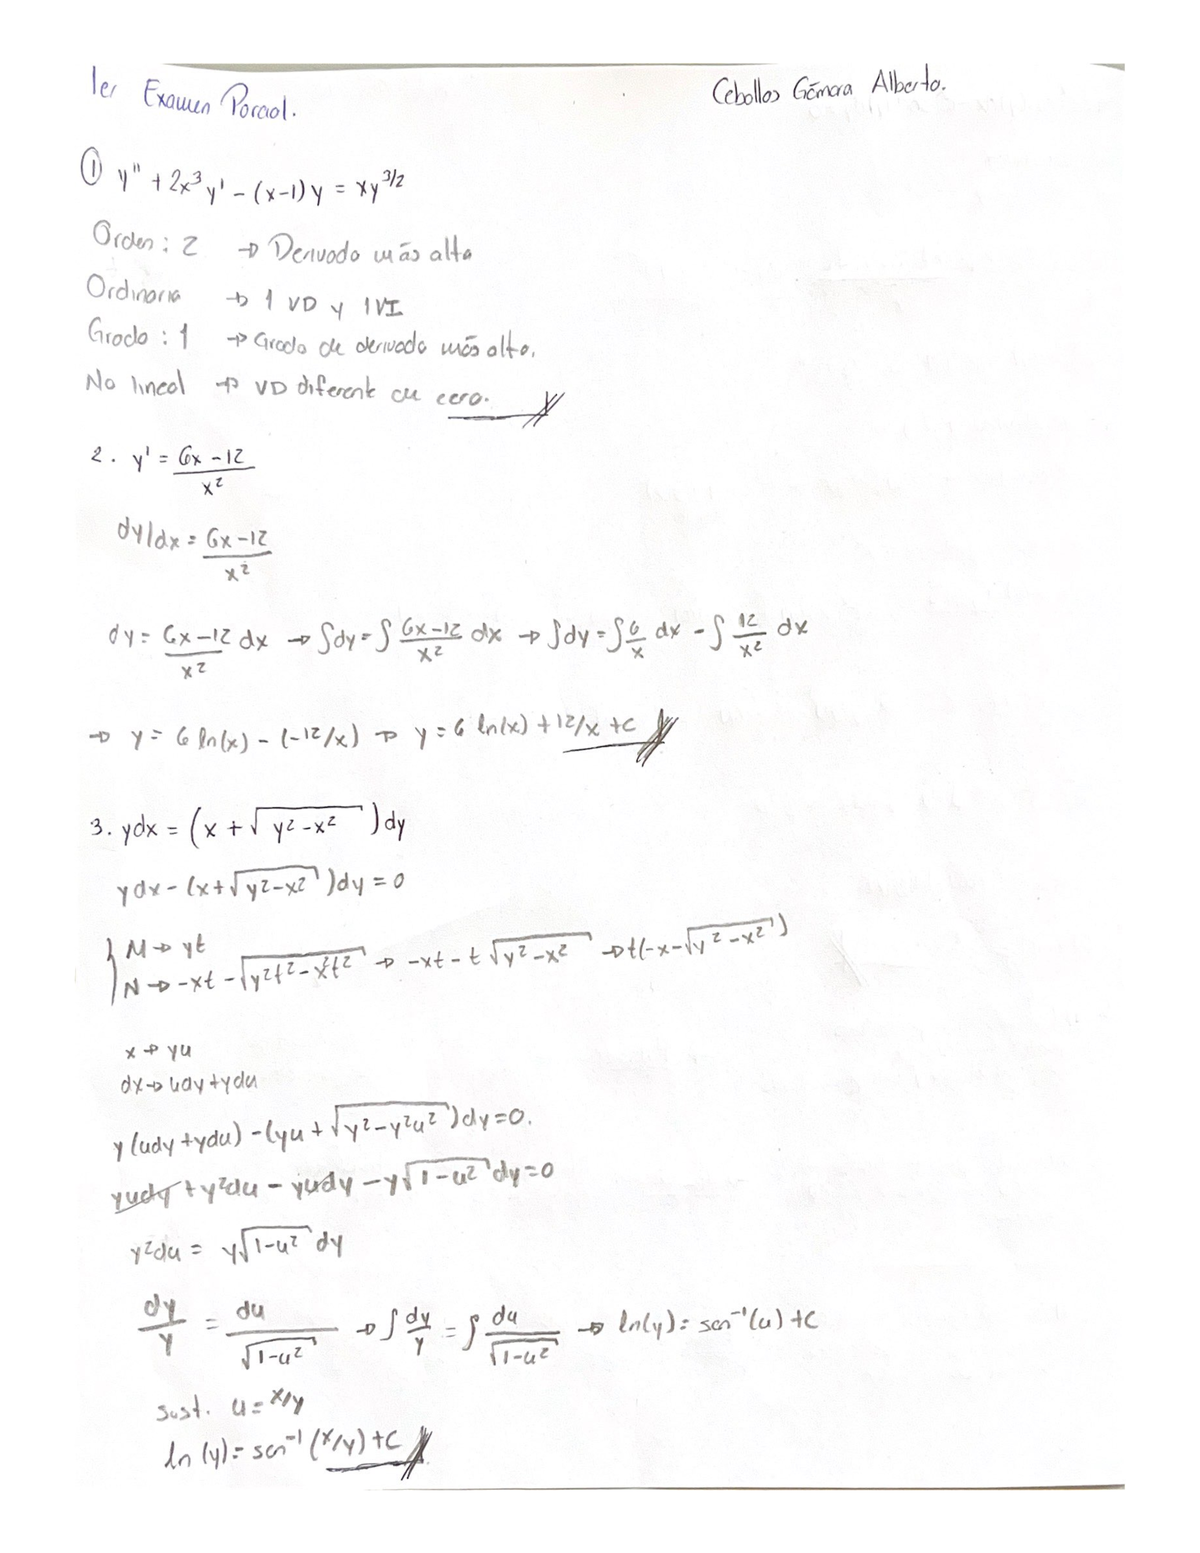 1er Examen Parcial.
Ceballos Gámara Alberto.
① y'' + 2x³y' - (x-1)y = xy^3/2
Orden: 2 → Derivada más alta
Ordinaria → 1 VD y 1VI
Grado: 1 → Grado de derivada más alta.
No lineal → VD diferente cu cero.
2. y' = 6x-12 / x²
dy/dx = 6x-12 / x²
dy = 6x-12 / x² dx → ∫dy = ∫ 6x-12 / x² dx → ∫dy = ∫ 6/x dx - ∫ 12/x² dx
→ y = 6 ln(x) - (-12/x) → y = 6 ln(x) + 12/x + c
3. ydx = (x + √(y²-x²))dy
ydx - (x+√(y²-x²))dy = 0
M → yt
N → -xt - √(y²t²-x²t²) → -xt - t√(y²-x²) → t(-x-√(y²-x²))
x → yu
dx → udy+ydu
y(udy+ydu) - (yu + √(y²-y²u²))dy=0.
yudy + y²du - yudy - y√(1-u²)dy=0
y²du = y√(1-u²)dy
dy/y = du/√(1-u²) → ∫dy/y = ∫ du/√(1-u²) → ln(y) = sen⁻¹(u) + C
sust. u = x/y
ln (y) = sen⁻¹ (x/y) + C